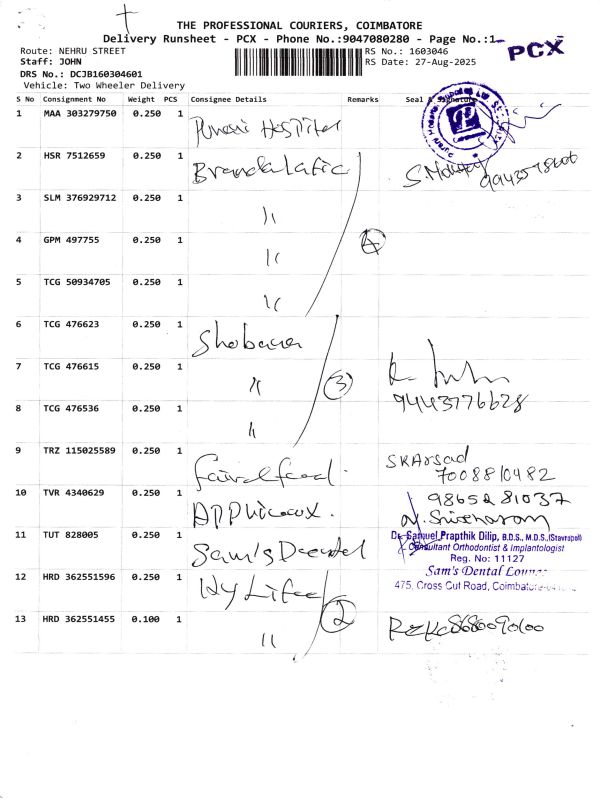 THE PROFESSIONAL COURIERS, COIMBATORE
Delivery Runsheet - PCX - Phone No.:9047080280 - Page No.:1
PCX
Route: NEHRU STREET
RS No.: 1603046
Staff: JOHN
RS Date: 27-Aug-2025
DRS No.: DCJB160304601
Vehicle: Two Wheeler Delivery
S No Consignment No Weight PCS Consignee Details Remarks Seal & Signature
1 MAA 303279750 0.250 1 Hospital
2 HSR 7512659 0.250 1
3 SLM 376929712 0.250 1 ״
4 GPM 497755 0.250 1 ״ 4
5 TCG 50934705 0.250 1 ״
6 TCG 476623 0.250 1 Shobana
7 TCG 476615 0.250 1 ״ 3
9443776628
8 TCG 476536 0.250 1 ״
9 TRZ 115025589 0.250 1 SKArsad
7008810482
10 TVR 4340629 0.250 1 9865281037
11 TUT 828005 0.250 1 Sam's Dental
Dr. Samuel Prapthik Dilip, B.D.S., M.D.S.,(Stavropol)
Consultant Orthodontist & Implantologist
Reg. No: 11127
Sam's Dental
475, Cross Cut Road, Coimbatore
12 HRD 362551596 0.250 1 Hy Life 2
13 HRD 362551455 0.100 1 ״